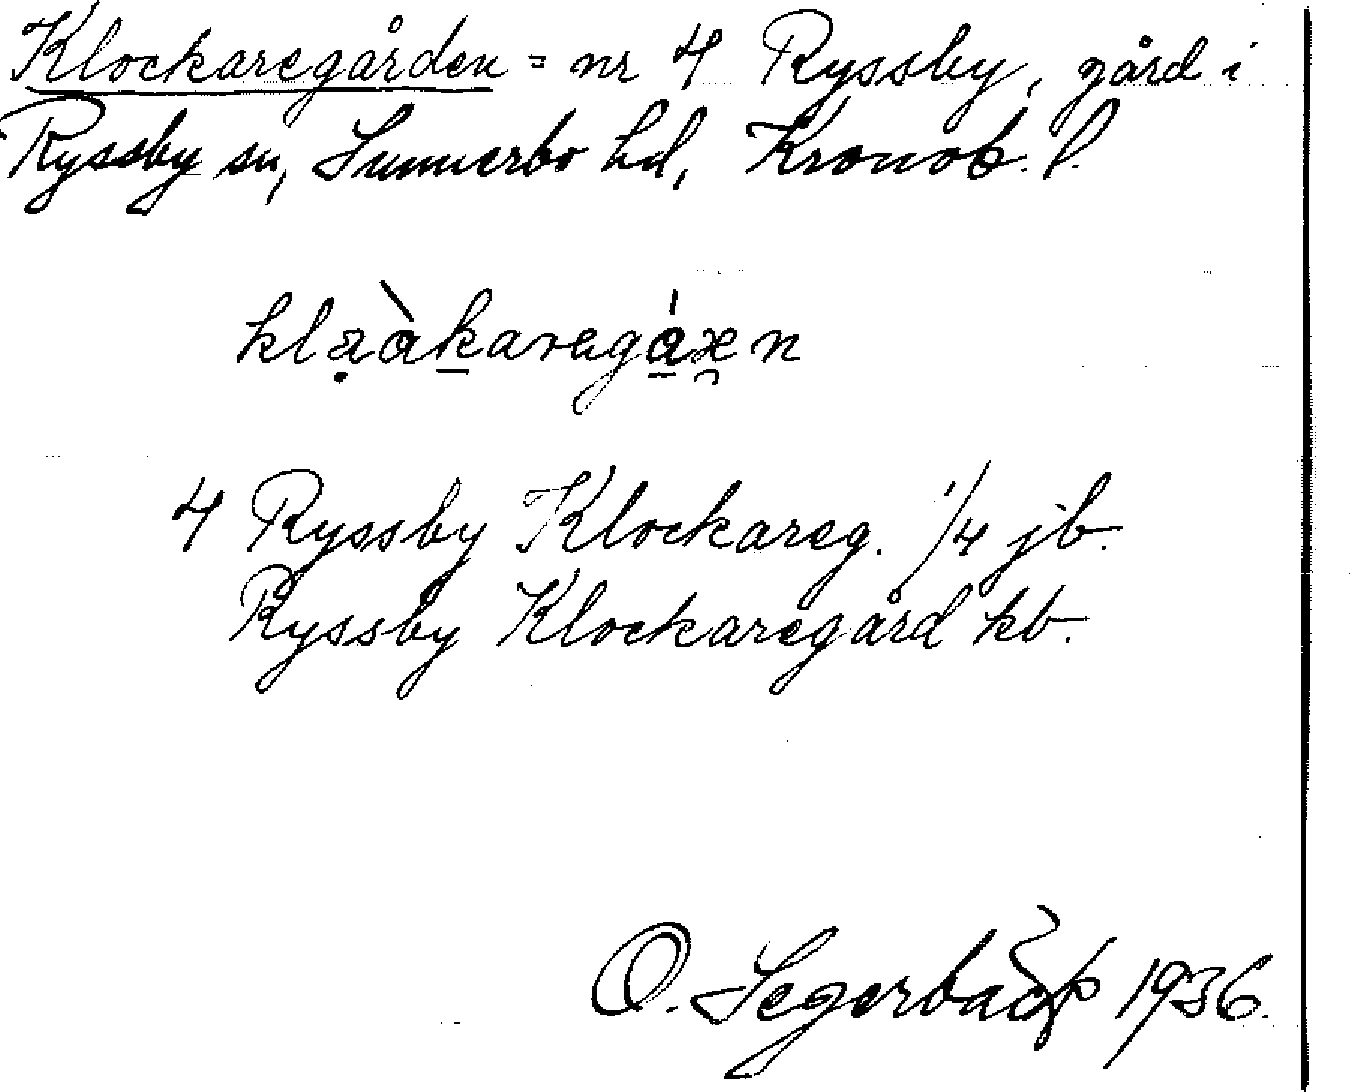 Klockaregården = nr 4 Ryssby, gård i
Ryssby sn, Sunnerbo hd, Kronob. l.
4 Ryssby Klockareg. 1/4 jb.
Ryssby Klockaregård kb.
O. Segerbäck 1936.